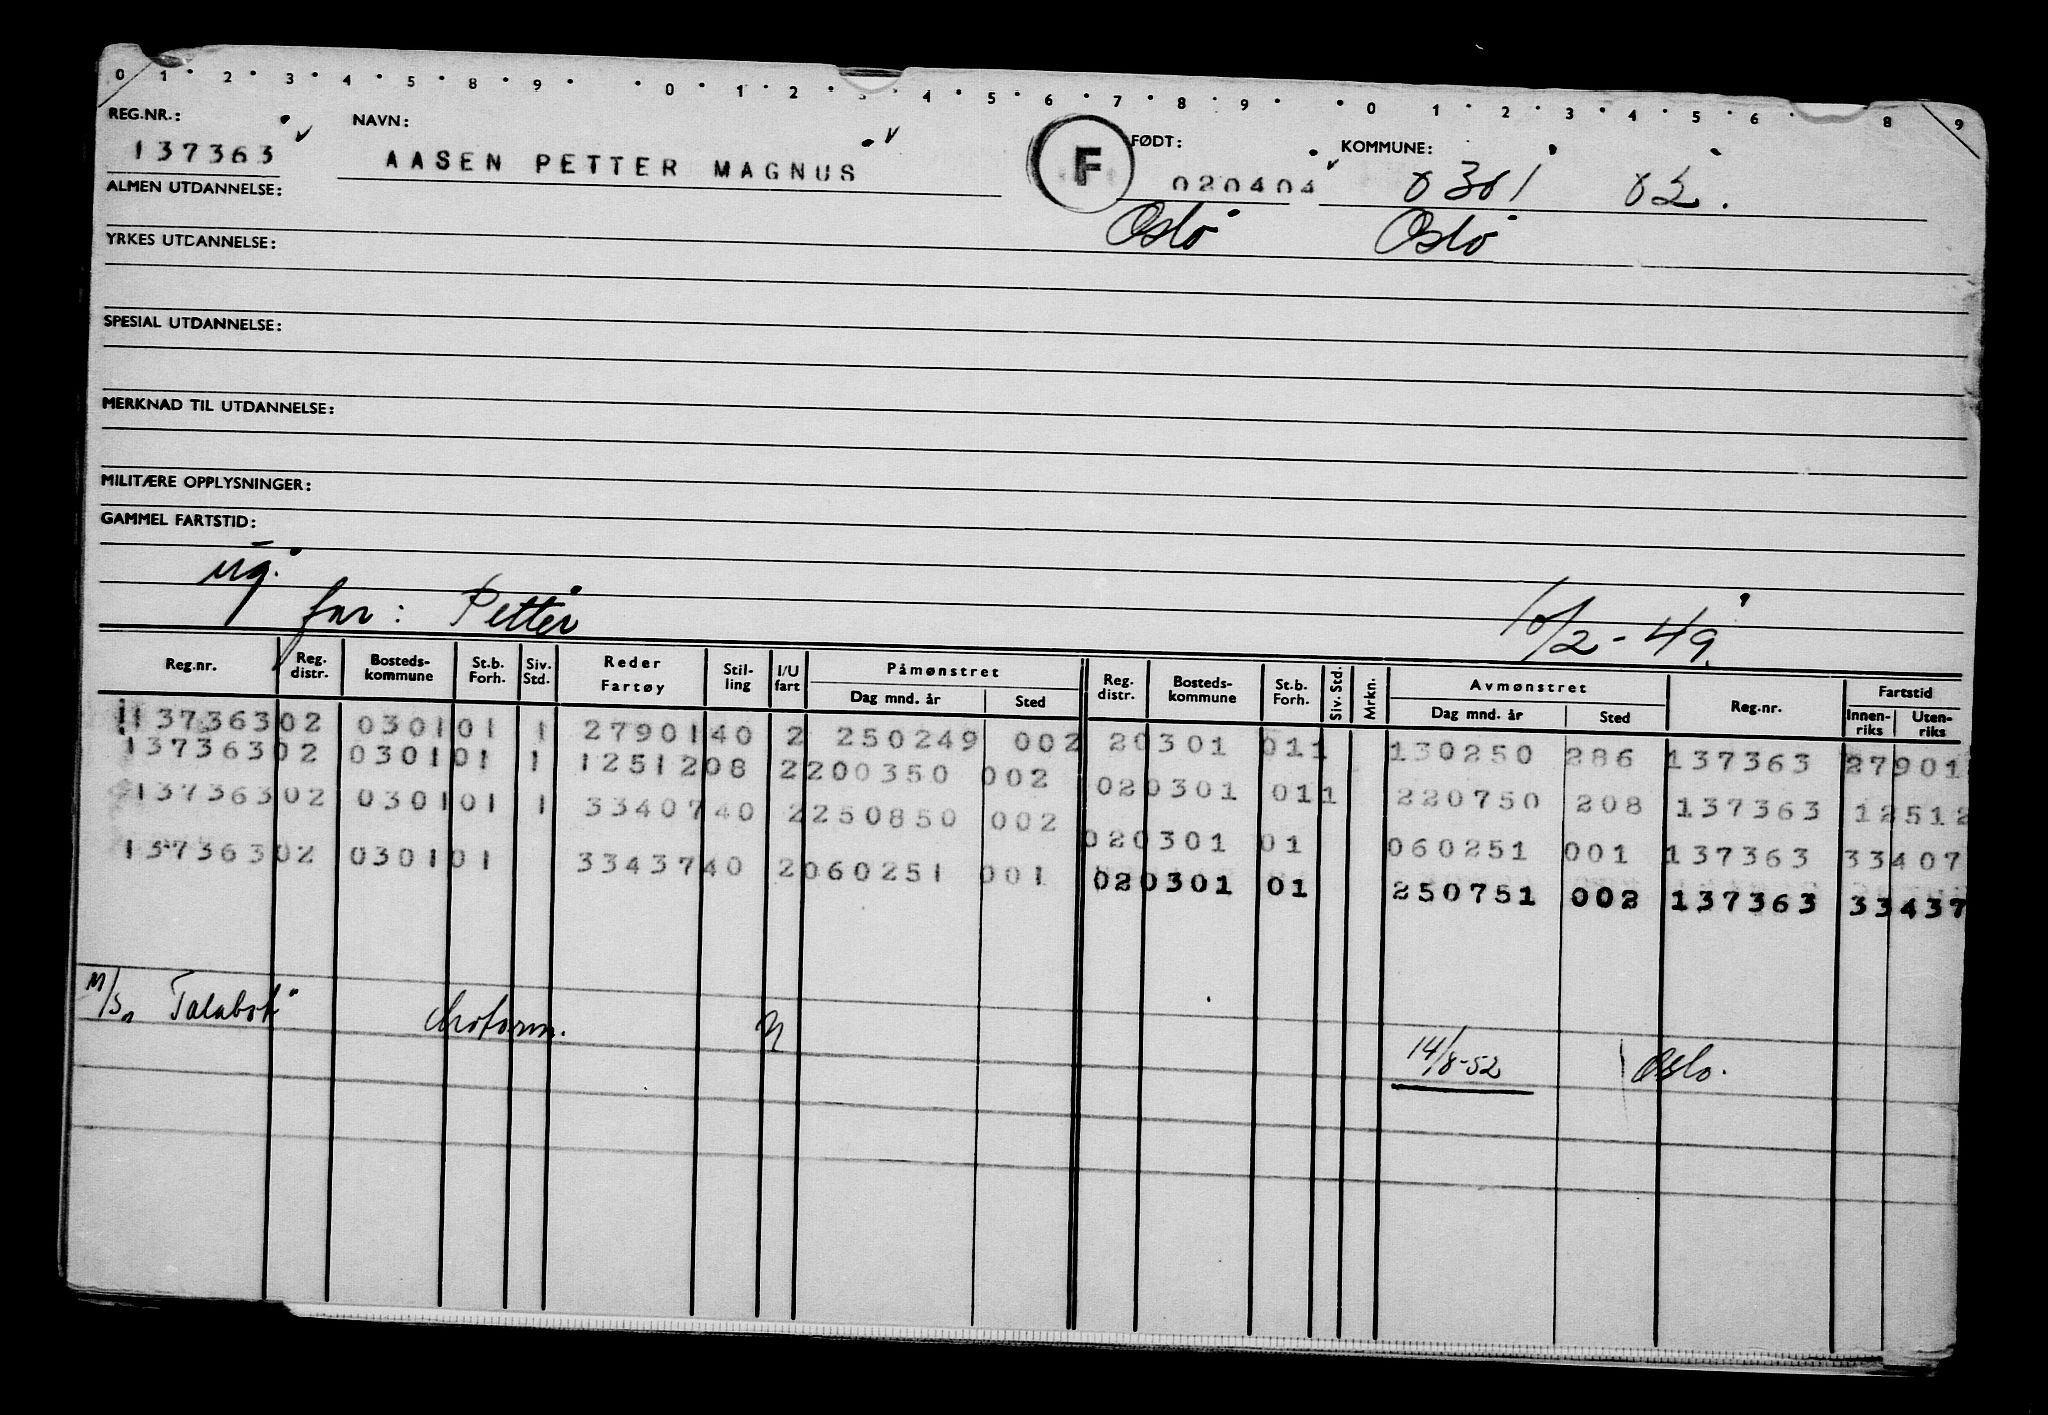 0 1 2 3 4 5 8 9 0 1 2 3 4 5 6 7 8 9 0 1 2 3 4 5 6 8 9
REG.NR.: NAVN: FØDT: KOMMUNE:
137363 AASEN PETTER MAGNUS F 020404 0301 02.
ALMEN UTDANNELSE: Oslo Oslo
YRKES UTDANNELSE:
SPESIAL UTDANNELSE:
MERKNAD TIL UTDANNELSE:
MILITÆRE OPPLYSNINGER:
GAMMEL FARTSTID:
ug.
far: Petter 10/2-49.
Reg.nr. Reg. distr. Bosteds-kommune St.b. Forh. Siv. Std. Reder Fartøy Stil-ling I/U fart Påmønstret Dag mnd. år Sted Reg. distr. Bosteds-kommune St.b. Forh. Siv. Std. Mrkn. Avmønstret Dag mnd. år Sted Reg.nr. Fartstid Innen-riks Uten-riks
13736302 030101 1 2790140 2 250249 002 20301 011 130250 286 137363 27901
13736302 030101 1 1251208 2200350 002 020301 011 220750 208 137363 12512
13736302 030101 1 3340740 2250850 002 020301 01 060251 001 137363 33407
13736302 030101 3343740 2060251 001 020301 01 250751 002 137363 33437
M/S "Talabot" Motorm. U 14/8-52 Oslo.